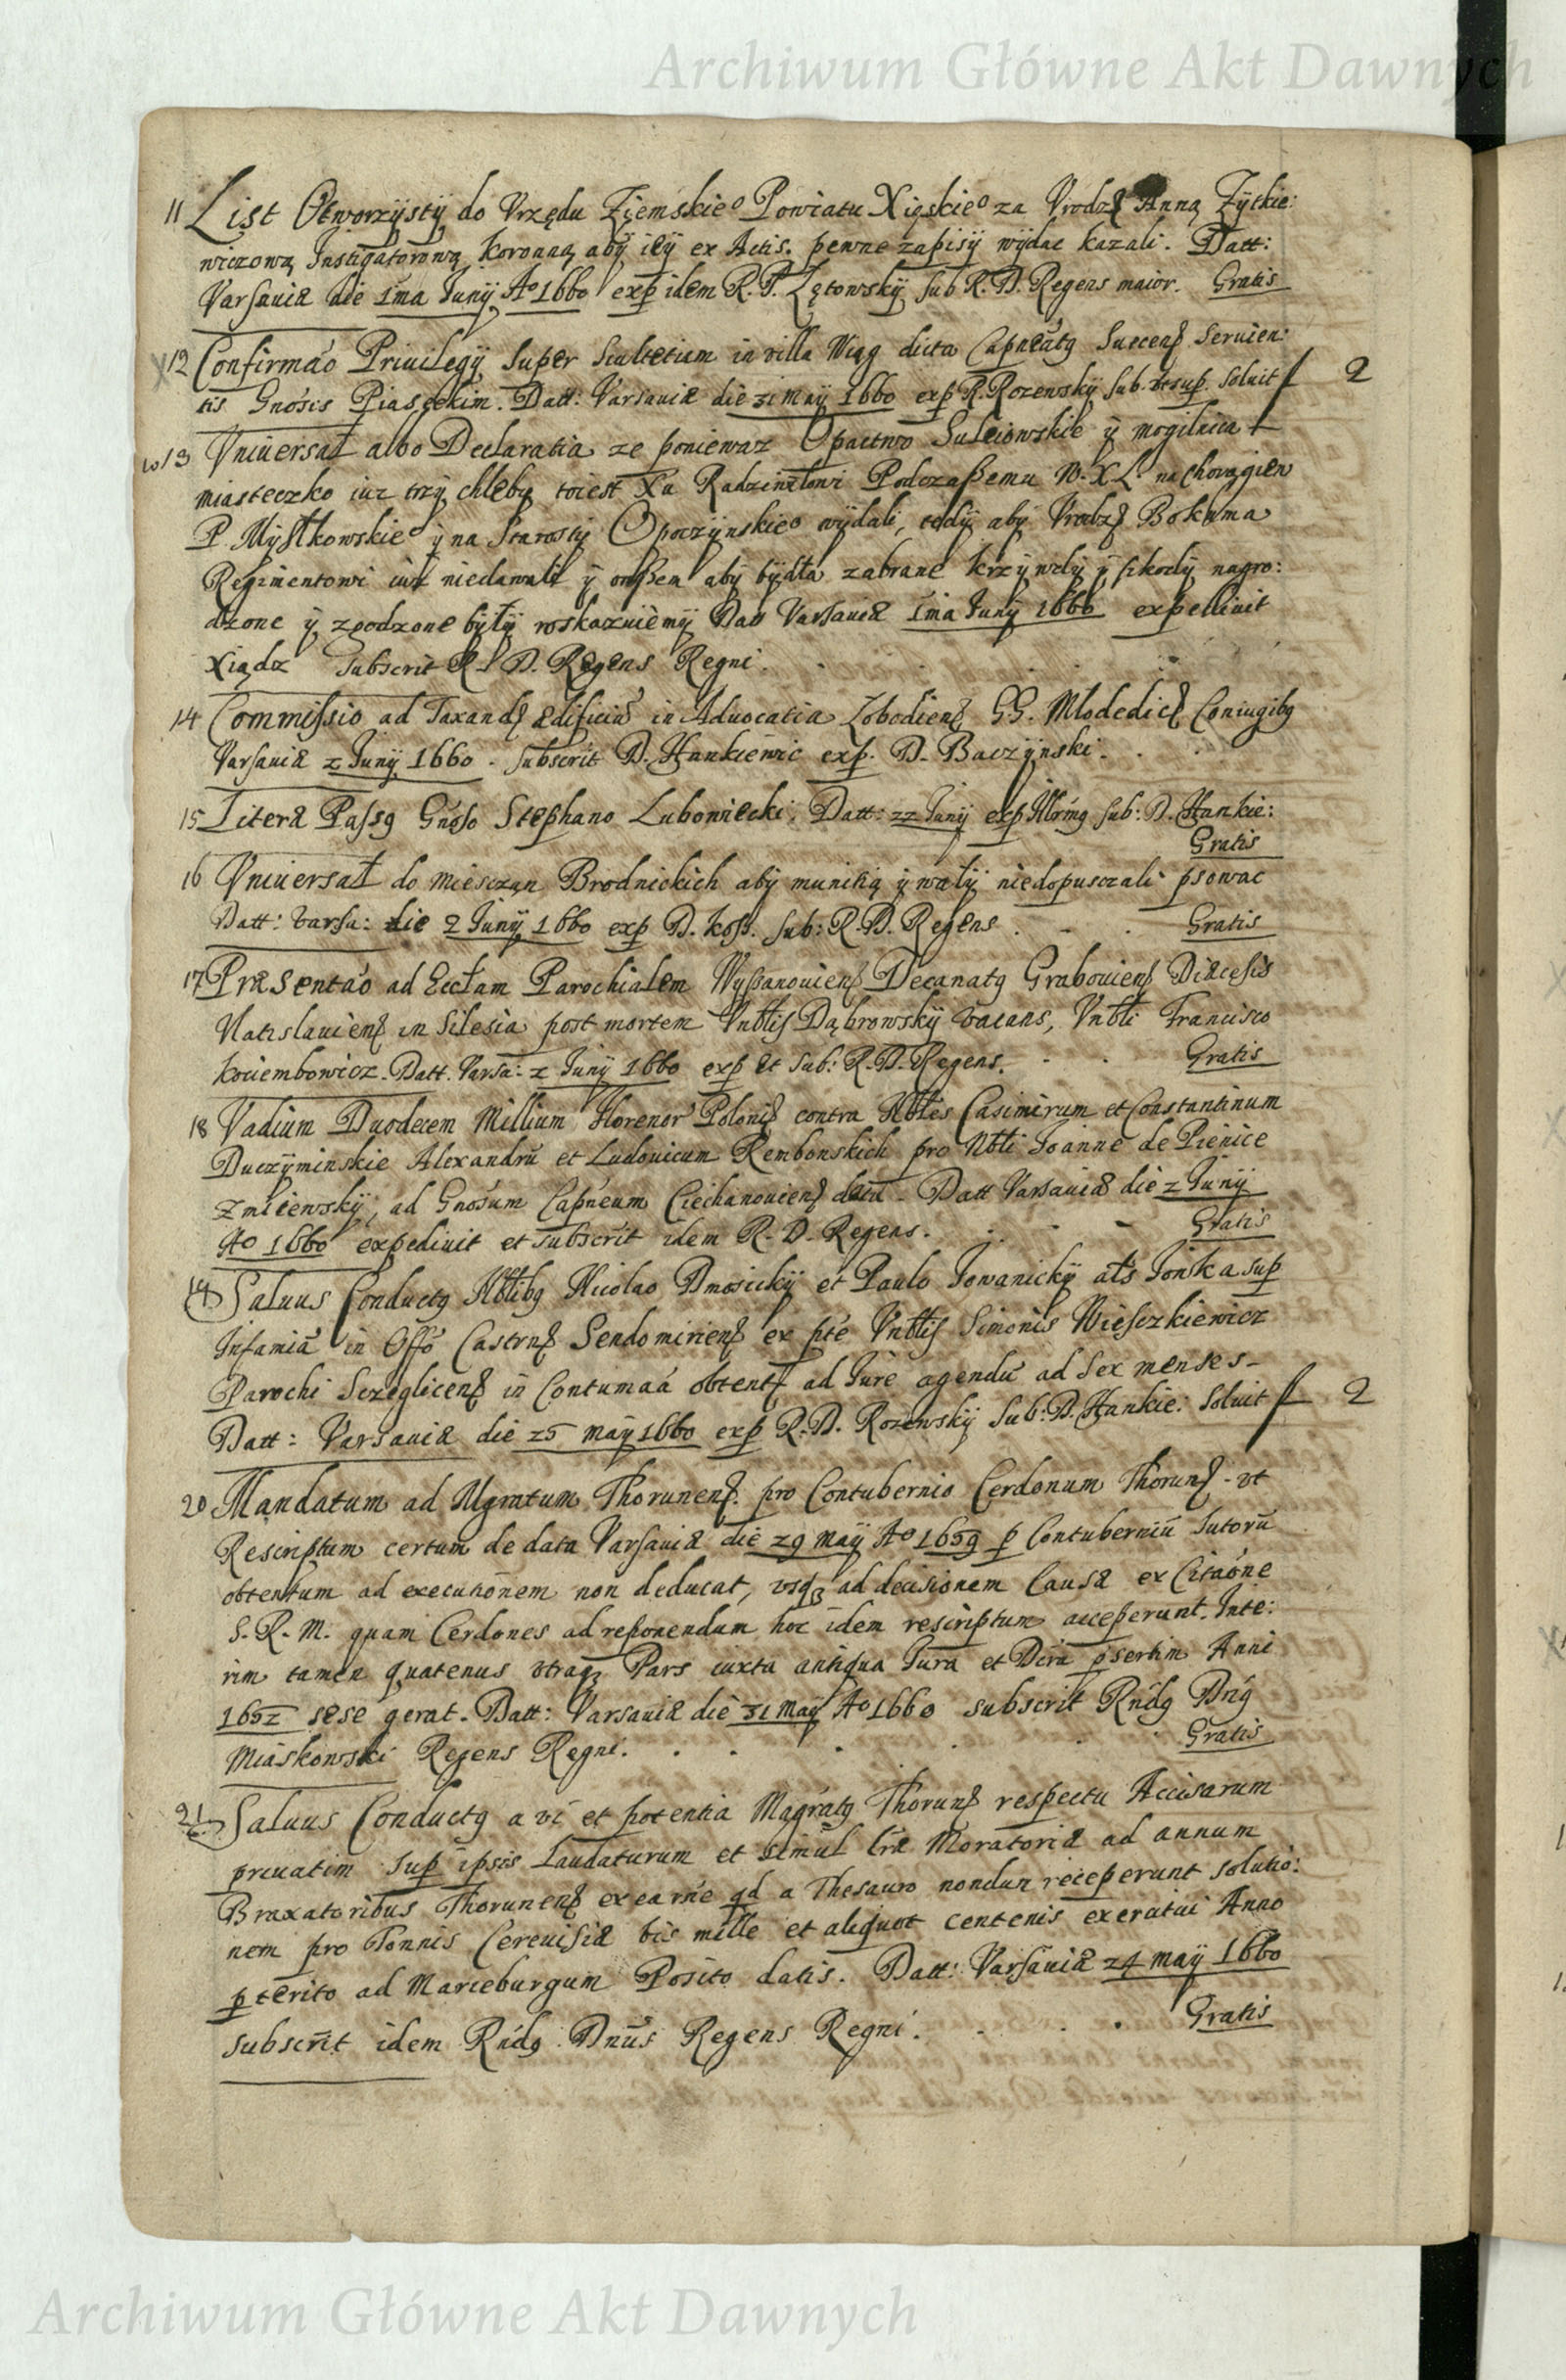 Archiwum Główne Akt Dawnych
11 List Otworzysty do Vrzędu Ziemskie° Powiatu Xiąskie° za Vrodz Anną Zytkie:
wiczową Instigatorową Koronną aby iey ex Actis. pewne zapisy wydac kazali. Datt:
Varsauiæ die 1ma Iuny A° 1660 exp idem R. P. Lętowsky sub R. D. Regens maior. Gratis
12 Confirmão Priuilegy super Scultetiam in villa Wiąg dicta Capneatq Suecens Seruien:
tis Gnosis Piaseckim. Datt: Varsauiæ die 31 May 1660 exp R. Rozensky sub. vt sup. soluit f 2
13 Vniuersał albo Declaratia ze poniewaz Opactwo Suleiowskie y mogilnica
miasteczko iuz trzy chleby toiest Xu Radziwiłowi Podczaßemu W. X L. na chorągiew
P. Mystkowskie° y na Starosty Opoczynskie° wydali, tedy aby Vrodz Bokuma
Regimentowi iuz niedawali y owßem aby bydła zabrane krzywdy y szkody nagro:
dzone y zgodzone były roskazuiemy Dat Varsauiæ 1ma Iuny 1660 expediuit
Xiądz subscrit R D. Regens Regni.
14 Commissio ad Taxand ædificiū in Aduocatia Lobodiens GG. Mlodedic Coniugibq
Varsauiæ 2 Iuny 1660. subscrit D. Hankiewic exp. D. Baczynski.
15 Literæ Passq Gnoso Stephano Lubowiecki. Datt: 22 Iuny exp Illrmq sub: D. Hankie:
Gratis
16 Vniuersał do mieszczan Brodnickich aby munitią y wały niedopusczali psowac
Datt: varsa: die 2 Iuny 1660 exp D. Koss. sub: R. D. Regens. Gratis
17 Præsentão ad Eccłam Parochialem Wyssanouiens Decanatq Grabouiens Diæcesis
Vlatislauiens in Silesia post mortem Vnblis Dąbrowsky vacans, Vnbli Francisco
Kociembowicz. Datt. Varsa: 2 Iuny 1660 exp et sub: R. D. Regens. Gratis
18 Vadium Duodecem Millium Florenor Polonis contra Nbłes Casimirum et Constantinum
Duczyminskie Alexandrū et Ludouicum Rembonskich pro Nbłi Ioanne de Pienice
Zmiiewsky, ad Gnosum Capneum Ciechanouiens datū. Datt Varsauiæ die 2 Iuny
A° 1660 expediuit et subscrit idem R. D. Regens. Gratis
19 Saluus Conductq Nbłibq Nicolao Dmosicky et Paulo Iowanicky ałs Ionska sup
Infamiā in Offo Castrns Sendomiriens ex pte Vnbłis Simonis Wieszkiewicz
Parochi Sczeglicens in Contumaā obtent ad Iure agendū ad sex menses
Datt: Varsauiæ die 25 may 1660 exp R. D. Rozensky sub: D. Hankie: soluit f 2
20 Mandatum ad Mgratum Thorunens. pro Contubernio Cerdonum Thoruns. vt
Rescriptum certum de data Varsauiæ die 29 May A° 1659 p Contuberniū Sutorū
obtentum ad executionem non deducat, vsq ad decisionem Causæ ex Citaóne
S. R. M. quam Cerdones ad reponendum hoc idem rescriptum acceperunt. Inte:
rim tamen quatenus vtraq Pars iuxta antiqua Iura et Dcra psertim Anni
1652 sese gerat. Datt: Varsauiæ die 31 May A° 1660 subscrit Rndq Dnq
Miaskowski Regens Regni. Gratis
21 Saluus Conductq a vi et potentia Magratq Thoruns respectu Accisarum
priuatim sup ipsis Laudaturum et simul lræ Moratoriæ ad annum
Braxatoribus Thorunens ex ea rne qd a Thesauro nondum receperunt solutio:
nem pro Tonnis Cereuisiæ bis mille et aliquot centenis exercitui Anno
pterito ad Marieburgum Posito datis. Datt: Varsauiæ 24 may 1660
subscrit idem Rndq Dnus Regens Regni. Gratis
Archiwum Główne Akt Dawnych